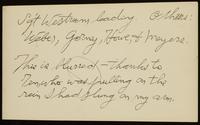 Sgt Westrom, leading. Others:
Weber, Gorny, Howe, & Meyers.
This is blurred - thanks to
Zen who was pulling on the
rein I had slung on my arm.